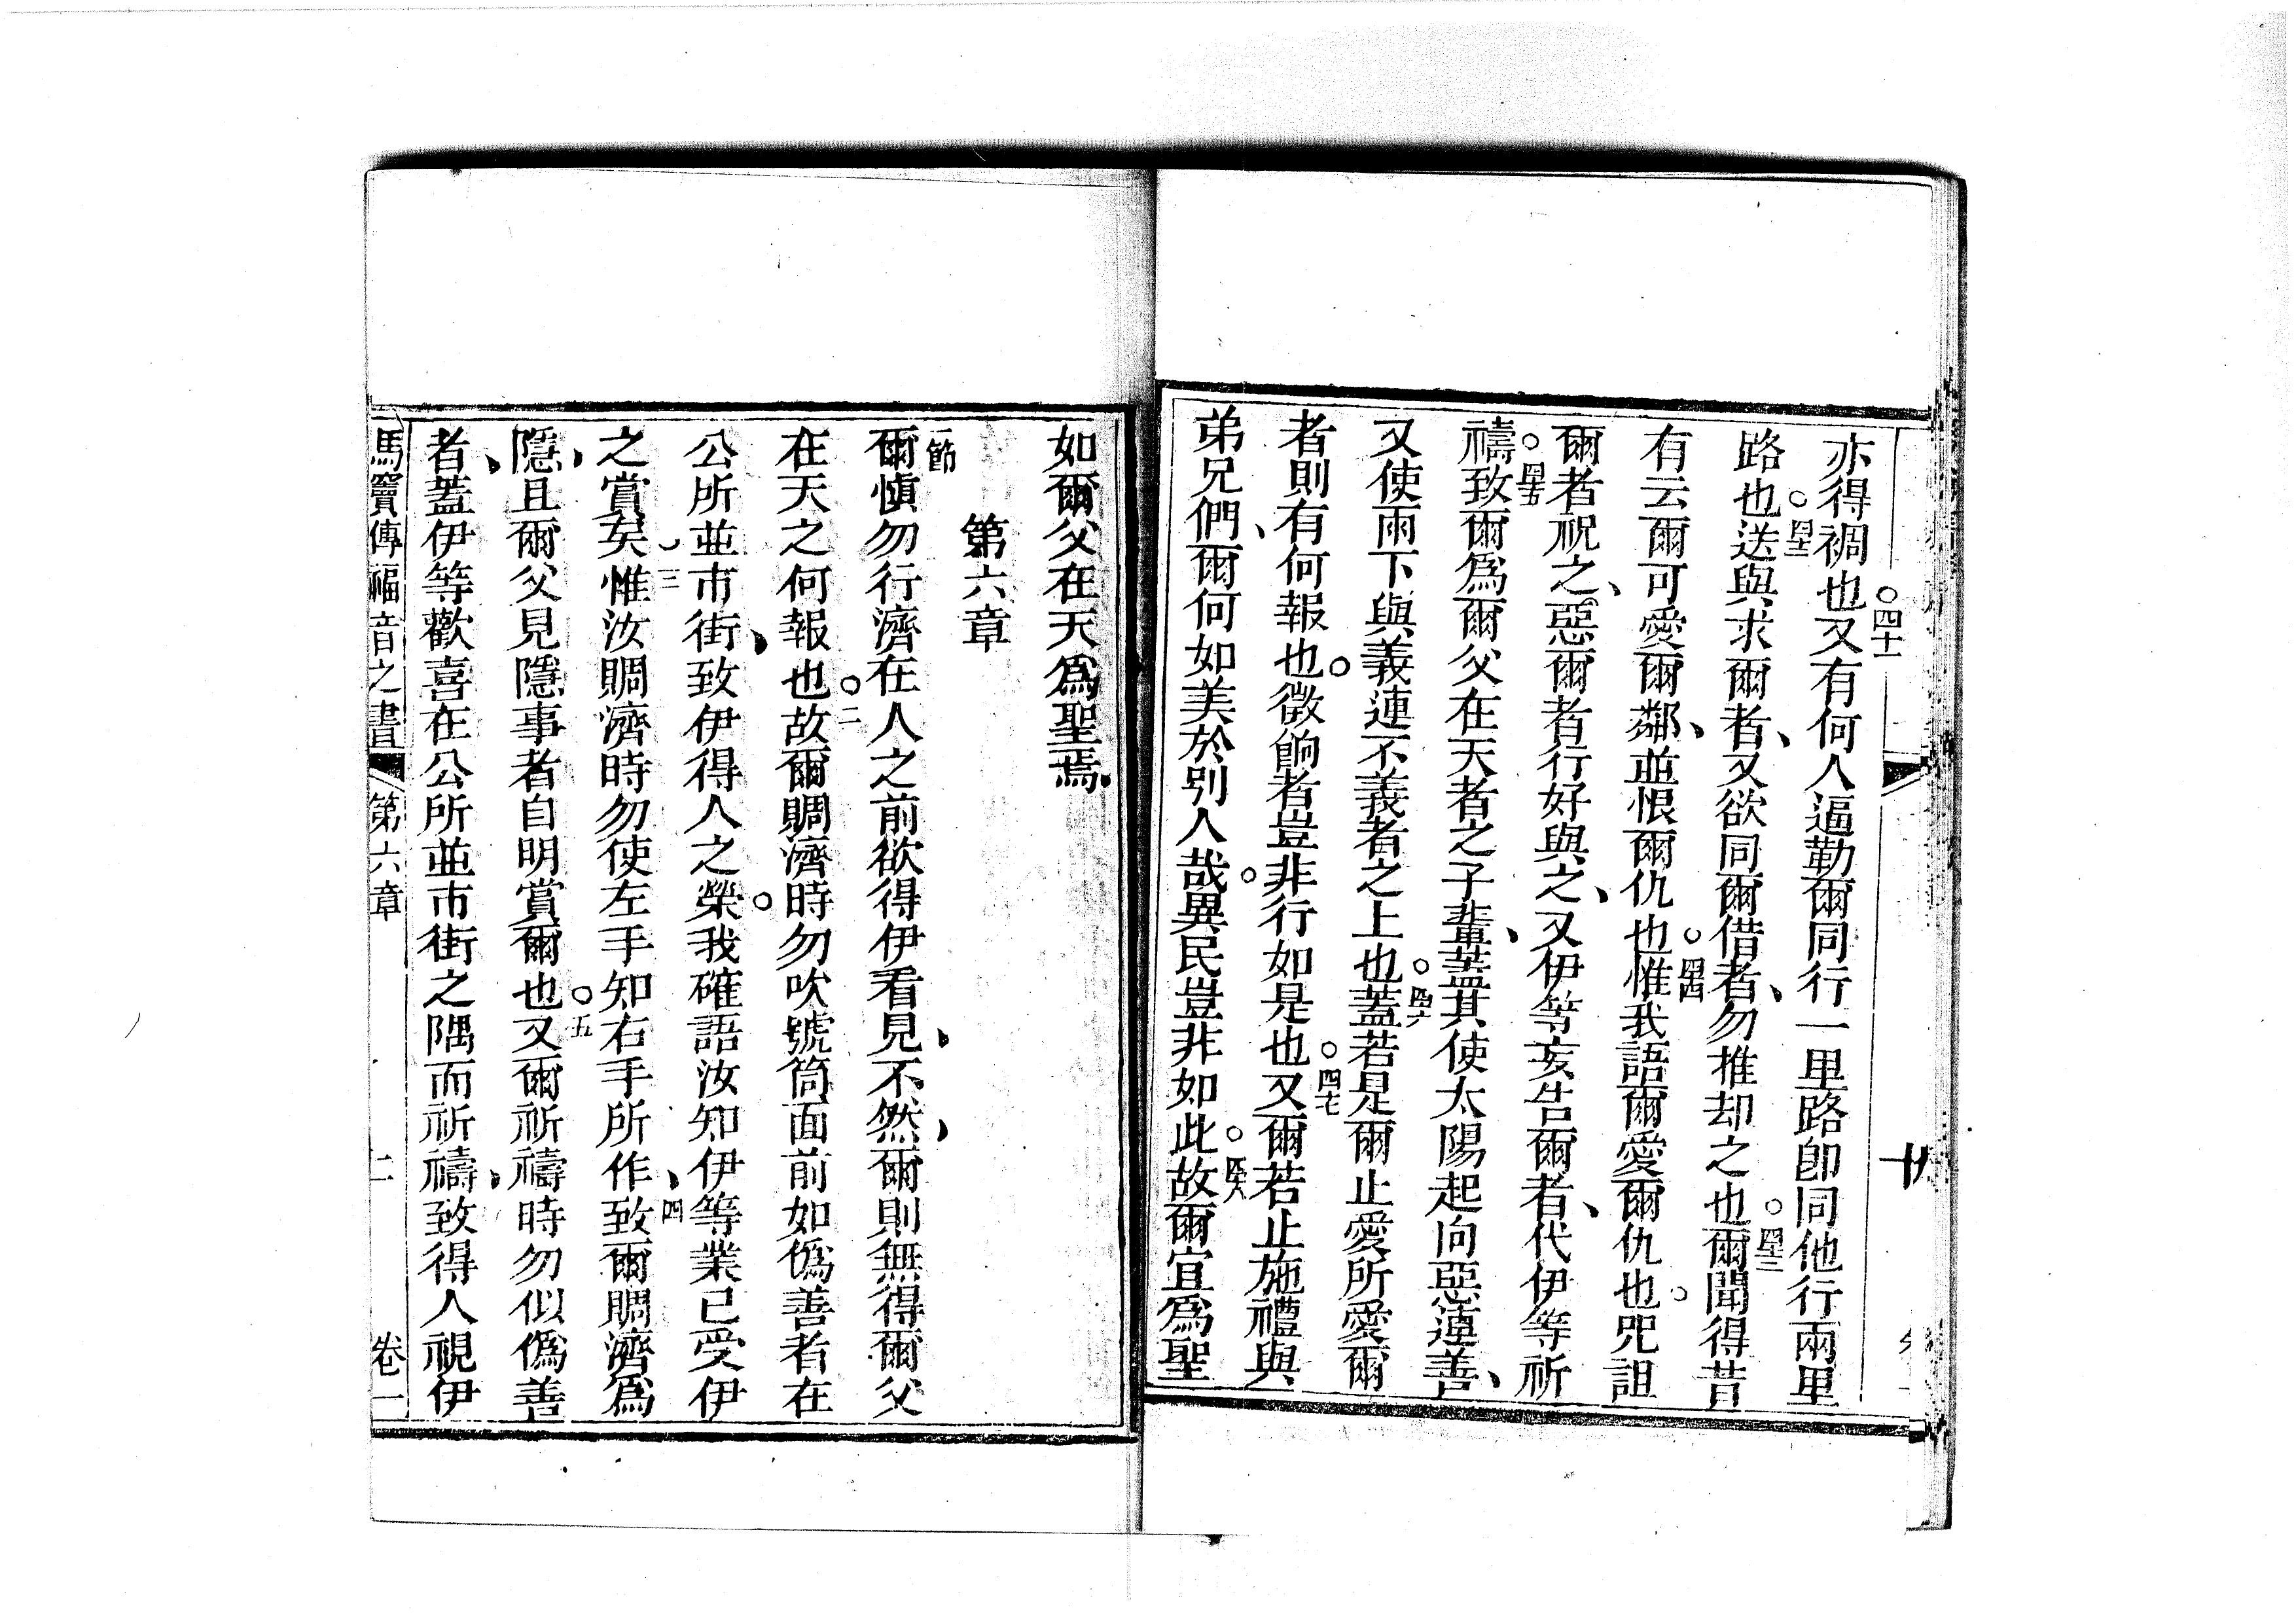 亦得裯也。四十一又有何人逼勒爾同行一里路卽同他行兩里
路也。四二送與求爾者、又欲同爾借者、勿推却之也。四三爾聞得昔
有云爾可愛爾鄰、並恨爾仇也。四四惟我語爾愛爾仇也。咒詛
爾者祝之、惡爾者行好與之、又伊等妄告爾者、代伊等祈
禱。四五致爾爲爾父在天者之子輩、蓋其使太陽起向惡連善、
又使雨下與義連不義者之上也。四六蓋若是爾止愛所愛爾
者則有何報也。徵餉者豈非行如是也。四七又爾若止施禮與
弟兄們、爾何如美於別人哉。異民豈非如此。四八故爾宜爲聖
如爾父在天爲聖焉、
第六章
一節爾愼勿行濟在人之前欲得伊看見、不然、爾則無得爾父
在天之何報也。二故爾賙濟時勿吹號筒面前如僞善者在
公所並市街、致伊得人之榮。我確語汝知伊等業已受伊
之賞矣三惟汝賙濟時勿使左手知右手所作、四致爾賙濟爲
隱、且爾父見隱事者自明賞爾也。五又爾祈禱時勿似僞善
者、蓋伊等歡喜在公所並市街之隅而祈禱、致得人視伊
馬竇傳福音之書 第六章 卷一